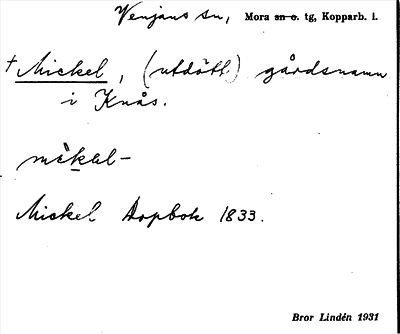 Venjans sn, Mora sn o. tg, Kopparb. l.
+ Mickel, (utdött) gårdsnamn
i Knås.
mìkəl-
Mickel Dopbok 1833.
Bror Lindén 1931